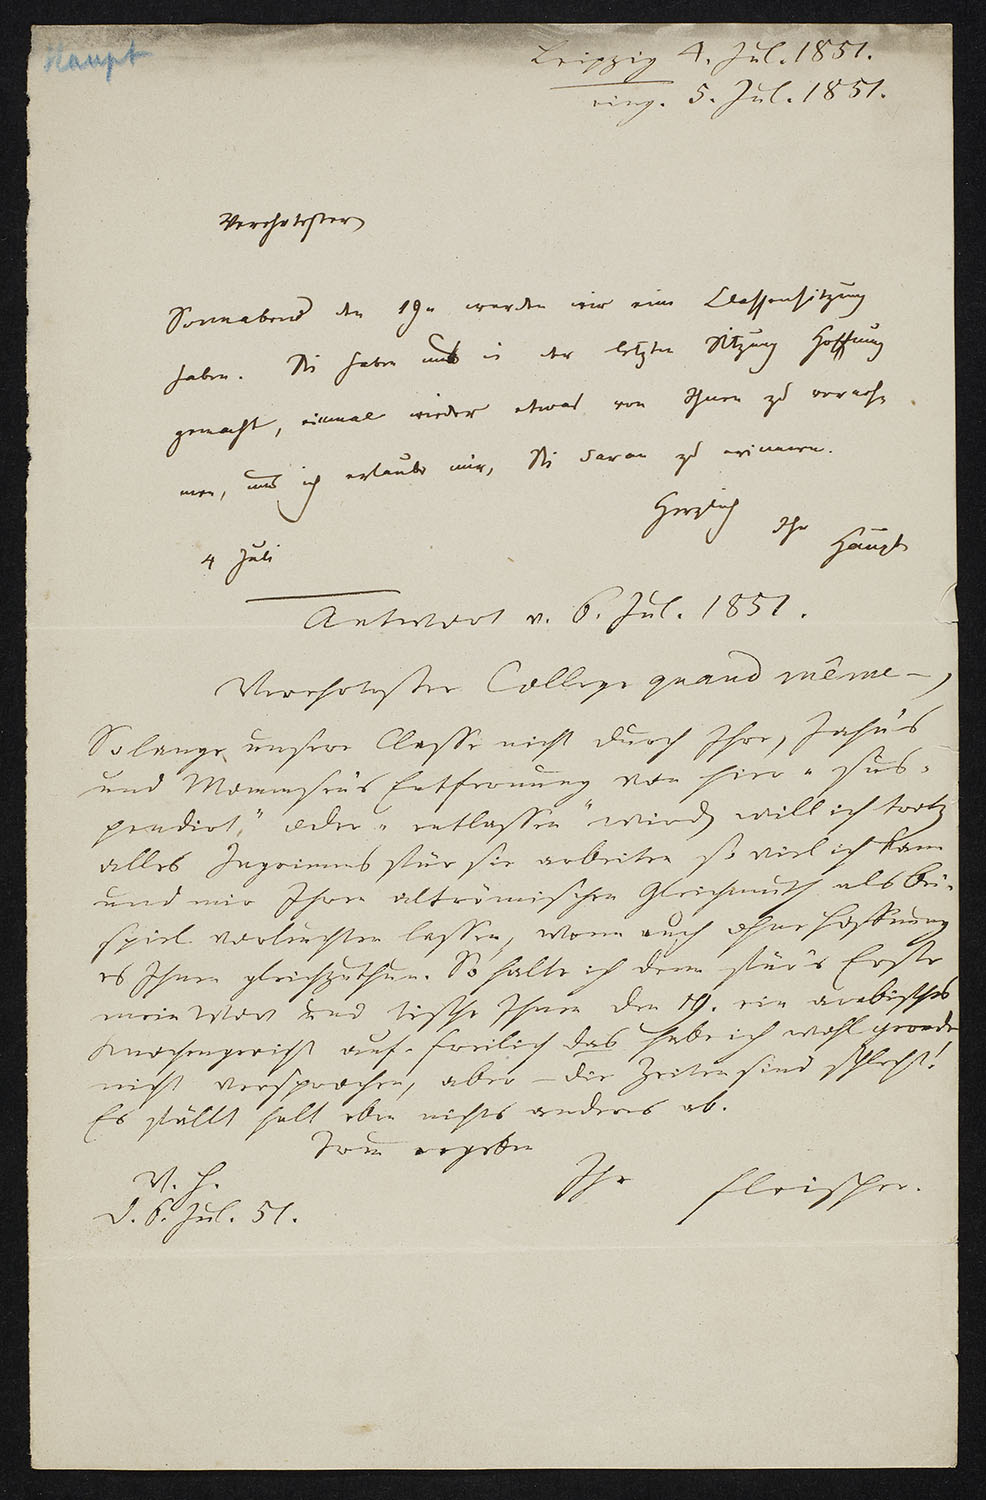 Haupt
Leipzig 4. Jul. 1851.
eing. 5. Jul. 1851.
Verehrtester
Sonnabend den 19n werden wir eine Classensitzung
haben. Sie haben uns in der letzten Sitzung Hoffnung
gemacht, einmal wieder etwas von Ihnen zu verneh-
men, und ich erlaube mir, Sie daran zu erinnern.
Herzlich
Ihr
Haupt
4 Juli
Antwort v. 6. Jul. 1851.
Verehrtester College quand même –,
Solange unsere Classe nicht durch Ihre, Jahn's
und Mommsen's Entfernung von hier „sus-
pendirt," oder „entlassen" wird, will ich trotz
alles Ingrimms für sie arbeiten so viel ich kann
und mir Ihren altrömischen Gleichmuth als Bei-
spiel vorleuchten lassen, wenn auch ohne Hoffnung
es Ihnen gleichzuthun. So halte ich denn für's Erste
mein Wort und tische Ihnen den 19. ein arabisches
Knochengericht auf. Freilich das habe ich wohl gerade
nicht versprochen, aber – die Zeiten sind schlecht!
Es fällt halt eben nichts anderes ab.
Treu ergeben
Ihr Fleischer.
V. H.
d. 6. Jul. 51.